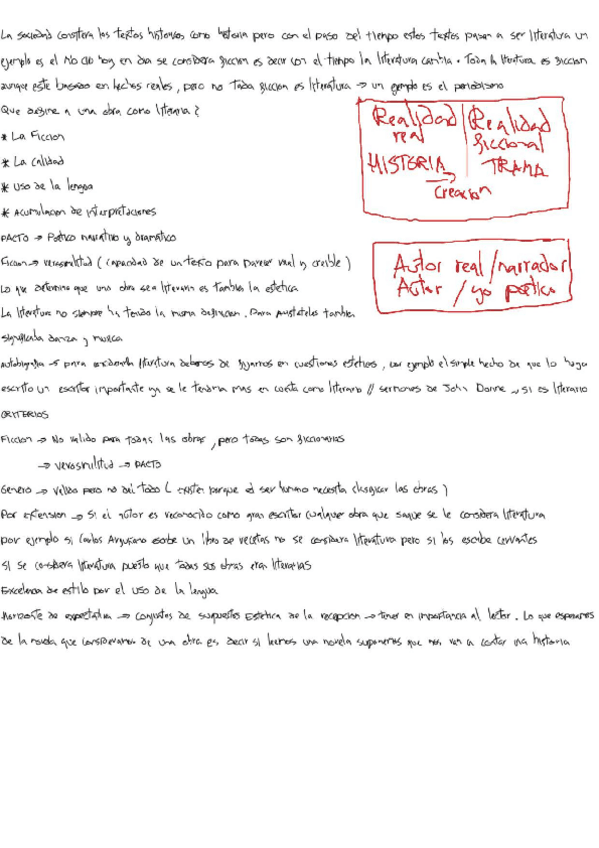 La sociedad considera los textos historicos como historia pero con el paso del tiempo estos textos pasan a ser literatura un
ejemplo es el hoy en dia se considera ficcion es decir con el tiempo la literatura cambia. Toda la literatura es ficcion
aunque este basado en hechos reales, pero no toda ficcion es literatura → un ejemplo es el periodismo
Que define a una obra como literaria?
* La Ficcion
* La calidad
* Uso de la lengua
* Acumulacion de interpretaciones
Realidad real
Realidad ficcional
HISTORIA → TRAMA
creacion
PACTO → Poetico narrativo y dramatico
Ficcion → verosimilitud (capacidad de un texto para parecer real y creible)
Autor real / narrador
Autor / yo poetico
Lo que determina que una obra sea literaria es tambien la estetica
La literatura no siempre ha tenido la misma definicion. Para Aristoteles tambien
significaba danza y musica
Autobiografia → para literatura debemos de fijarnos en cuestiones esteticas, un ejemplo el simple hecho de que lo haya
escrito un escritor importante ya se le tendria mas en cuenta como literario // sermones de John Donne → si es literario
CRITERIOS
Ficcion → No valido para todas las obras, pero todas son ficcionarias
→ verosimilitud → PACTO
Genero → valido pero no del todo (existen porque el ser humano necesita clasificar las obras)
Por extension → Si el autor es reconocido como gran escritor cualquier obra que saque se le considera literatura
por ejemplo si Carlos Arguiñano escribe un libro de recetas no se considera literatura pero si los escribe cervantes
si se considera literatura puesto que todas sus obras eran literarias
Excelencia de estilo por el uso de la lengua
Horizonte de expectativa → conjuntos de supuestos Estetica de la recepcion → tener en importancia al lector. Lo que esperamos
de la novela que consideramos de una obra es decir si leemos una novela suponemos que nos van a contar una historia